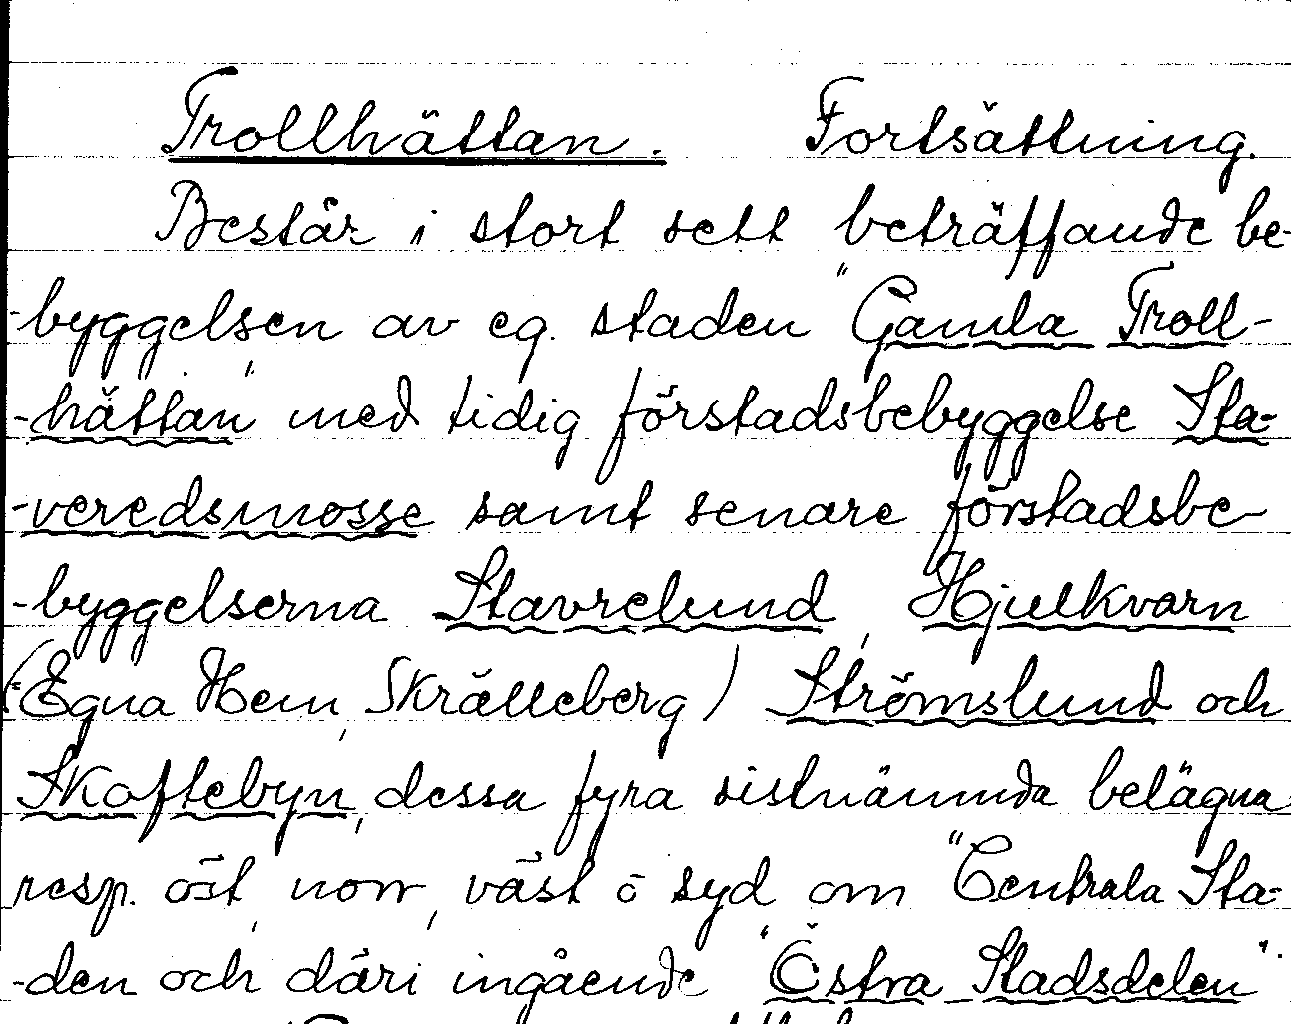 Trollhättan. Fortsättning.
Består i stort sett beträffande be-
-byggelsen av eg. staden "Gamla Troll-
-hättan" med tidig förstadsbebyggelse Sta-
-veredsmosse samt senare förstadsbe-
-byggelserna Stavrelund, Hjulkvarn
(Egna Hem, Skrälleberg) Strömslund och
Skoftebyn, dessa fyra sistnämnda belägna
resp. öst, norr, väst o syd om "Centrala Sta-
-den och däri ingående "Östra Stadsdelen".